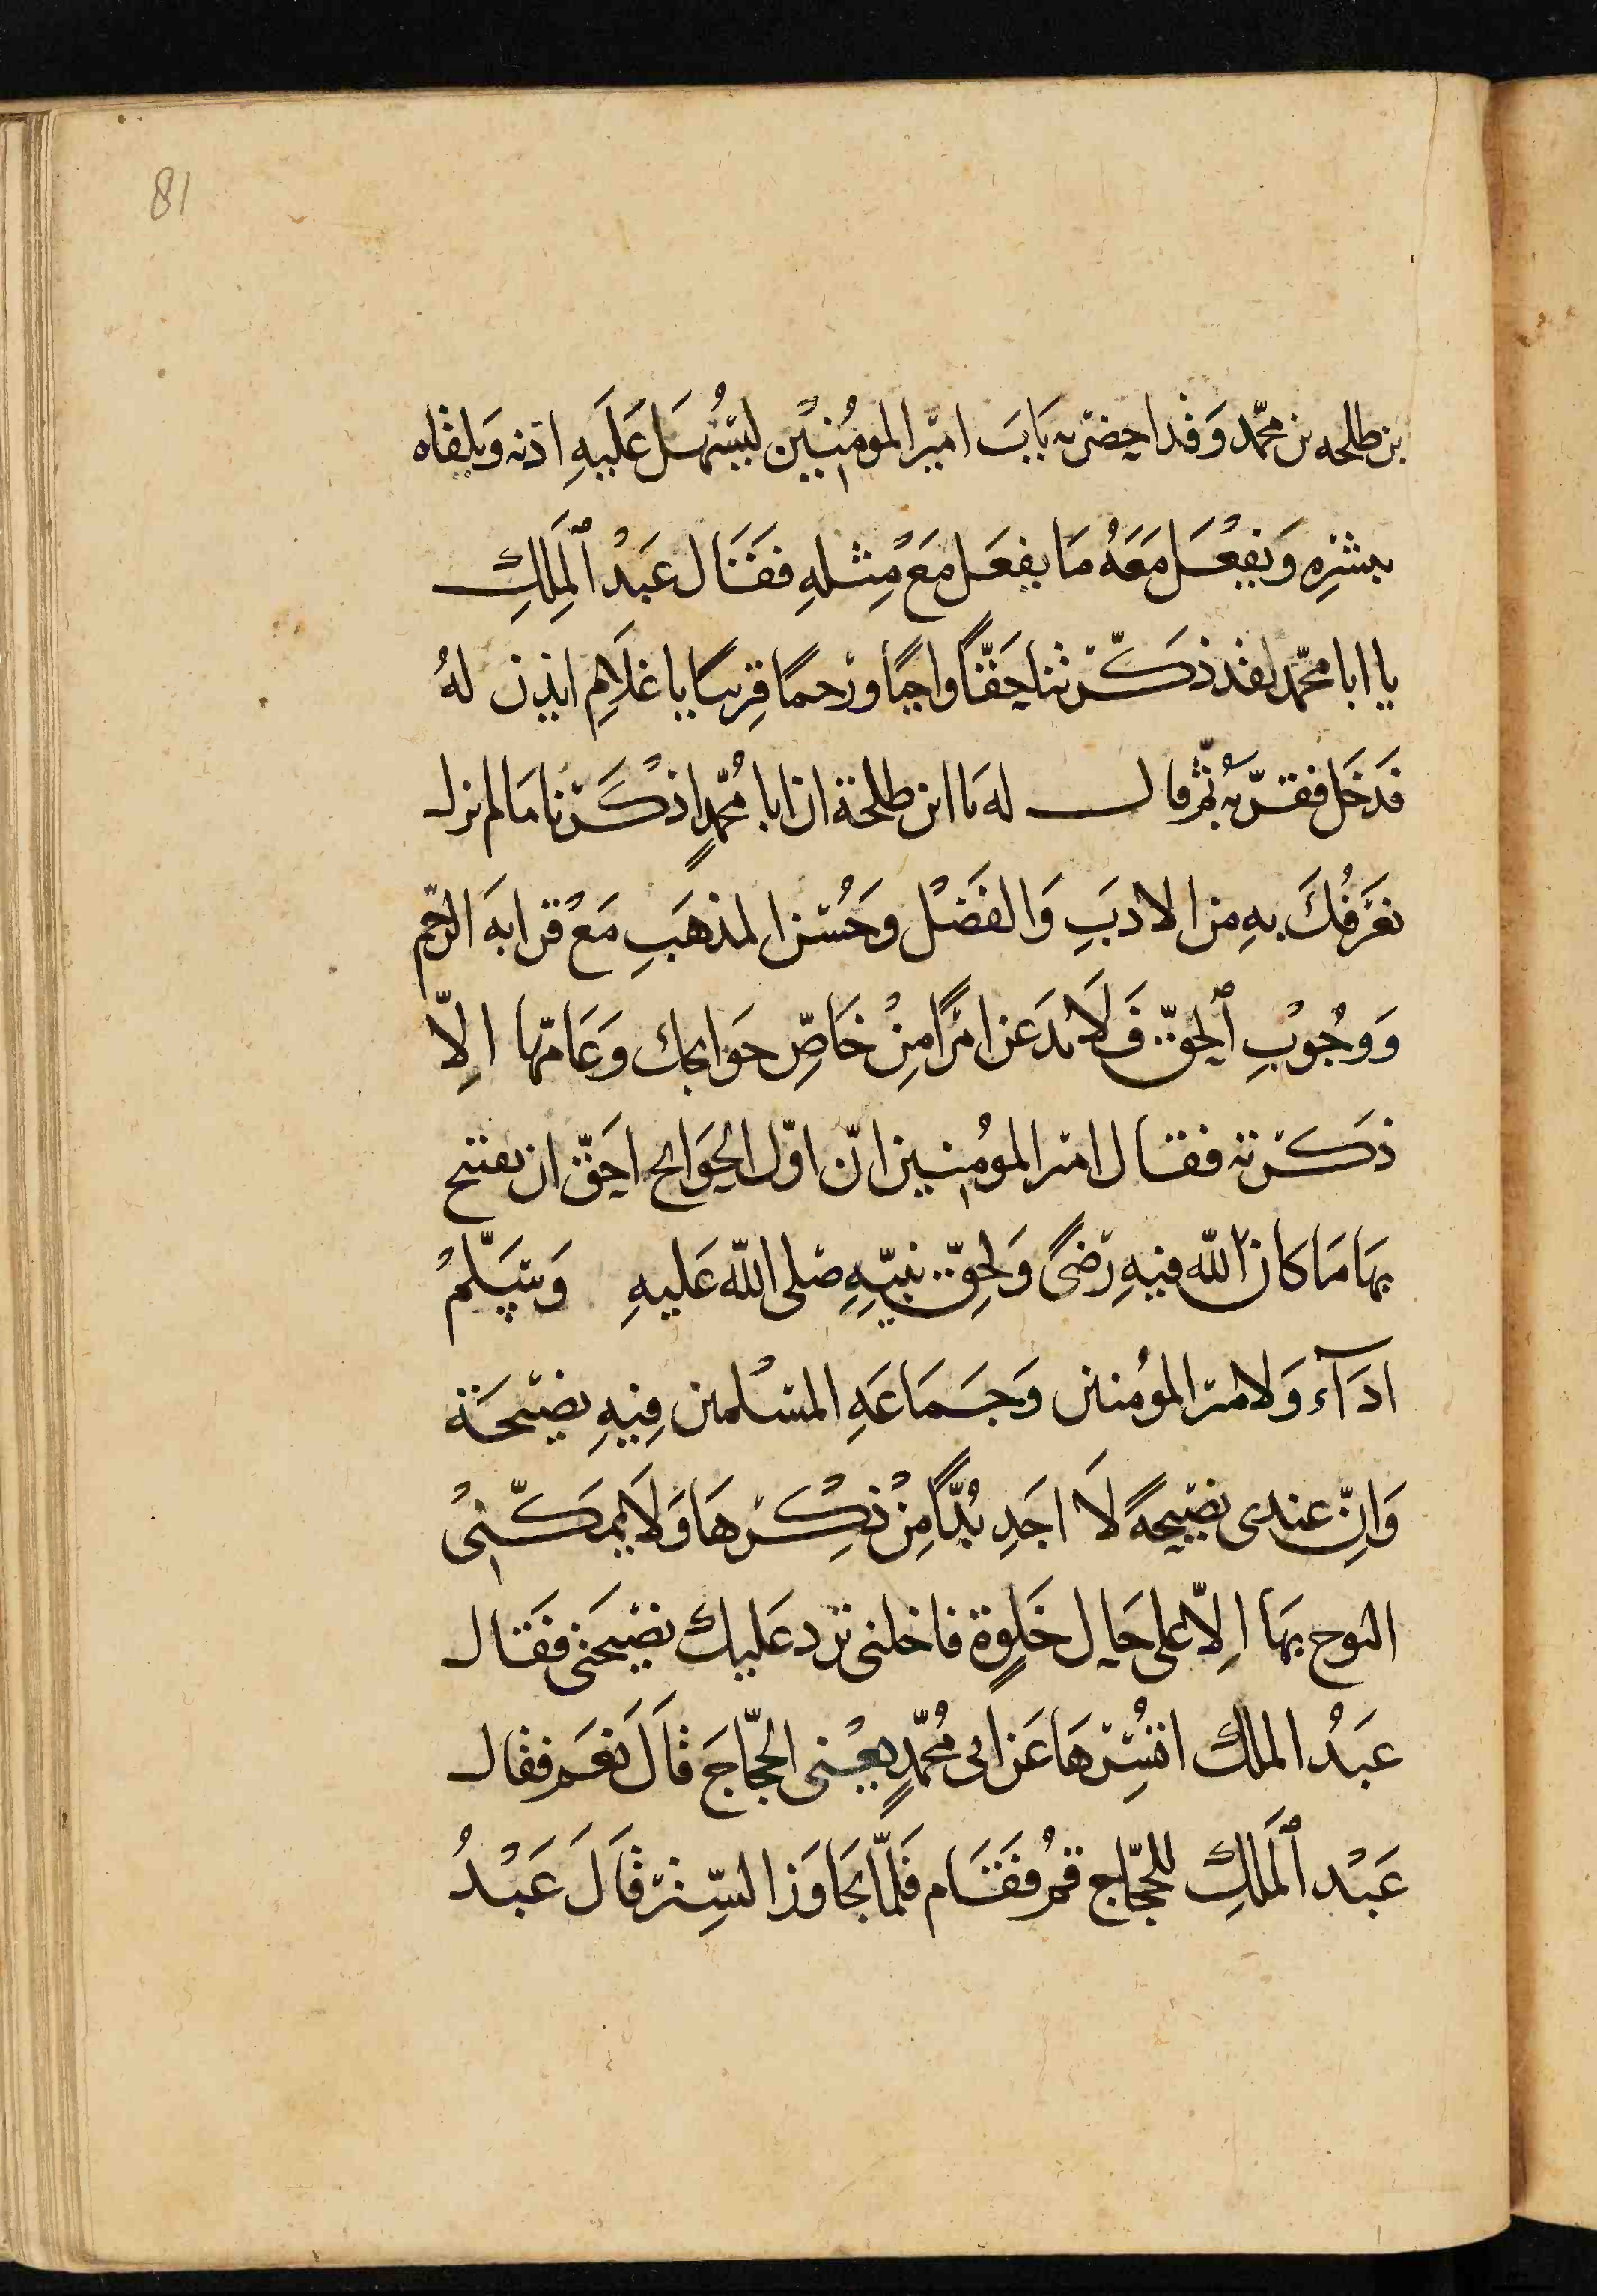 81
بن طلحه بن محمّد وَقد احضرته بَابَ امير المومُنِين ليَسُهَل عَلَيهِ اذنه وَيلقاه
ببشرِه وَيَفعُل مَعَهُ مَا يفعَل مَعَ مِثلهِ فقَالَ عَبدُ ٱلمَلِكِ
يا ابا محمّد لقد ذكّرتنا حَقّاً واجباً ورَحمًا قرِيبًا يا غلَامِ ايذن لهُ
فدَخَل فقرّبه ثمّ قال له يا ابن طلحة ان ابا مُحمّدٍ اذكَرنا ما لم نزل
نعَرفُكَ بهِ من الادبَ وَالفضل وَحُسن المذهَبِ مَعَ قرابهَ الرّحم
وَوجُوبِ ٱلحقّ فَلَا تدَعَن امرًا مِنْ خَاصِّ حوَايجك وعَامّتها الِلّا
ذكرته فقال امير المومُنِين انّ اوّل الحوَايج احَقّ ان يفتتح
بهَا مَا كان للّه فيهِ رضىً وَلِحقّ نبيّهِ صلى اللّه عَليهِ وَسَلّمُ
ادَآء وَلامير المومُنين وَجَمَاعَهِ المسْلمين فِيهِ نصيحَة
وَانِّ عندى نصيحهً لَا اجَدِ بُدّاً مِن ذكِرهَا وَلَا يمكّننىُ
البوح بهَا الِلّا على حَال خَلوةٍ فاخلنى ترد عَليك نصيحَتى فقَال
عَبدُ الملك اتسُترهَا عَن ابى مُحمّدٍ يعْنى الحجّاجَ قَالَ نعَم فقال
عَبْد ٱلمَلَكِ للحجّاج قمُ فقَام فَلمّا تجَاوَز السّتر قَالَ عَبْدُ